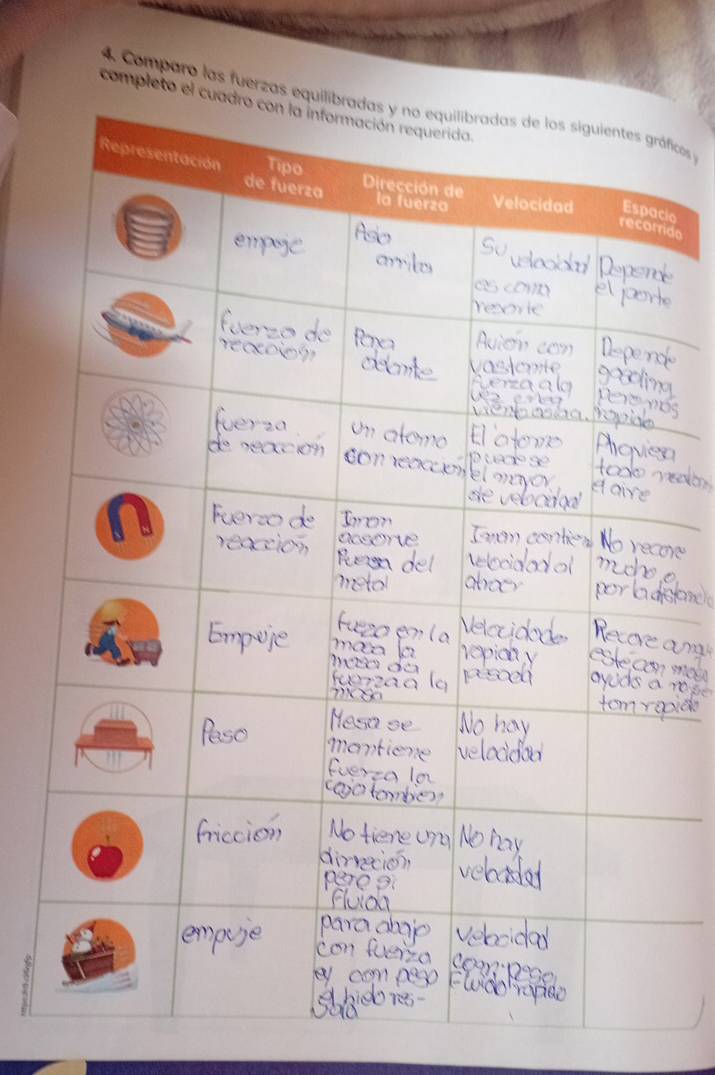 4. Comparo las fuerzas equilibradas y no equilibradas de los siguientes gráficos y
completo el cuadro con la información requerida.
Representación
Tipo
de fuerza
Dirección de
la fuerza
Velocidad
Espacio
recorrido
empoje
arriba
Su velocidad
es como
resorte
Depende
el porte
fuerza de
reacción
Para
delante
Avion con
fuerza alg
vez
Depende
rapido
fuerza
de reacción
un atomo
con reaccion
El atomo
puede se
el mayor
de velocidad
todo
el aire
Fuerzo de
reacción
Iman
del
metal
Iman contien
velocidad al
atraer
No recore
mucho
por la distancia
Empuje
en la
masa la
fuerza a la
masa
Velocidad
rapida y
pesada
Recore
este con
ayuda a
tom rapido
Peso
Mesa se
mantiene
fuerza la
caja tombien
No hay
velocidad
fricción
No tiene una
dirrecion
pero si
fluida
No hay
velocidad
empuje
para abajo
con fuerza
el hielo res-
bala
velocidad
con peso
Fluido rapido